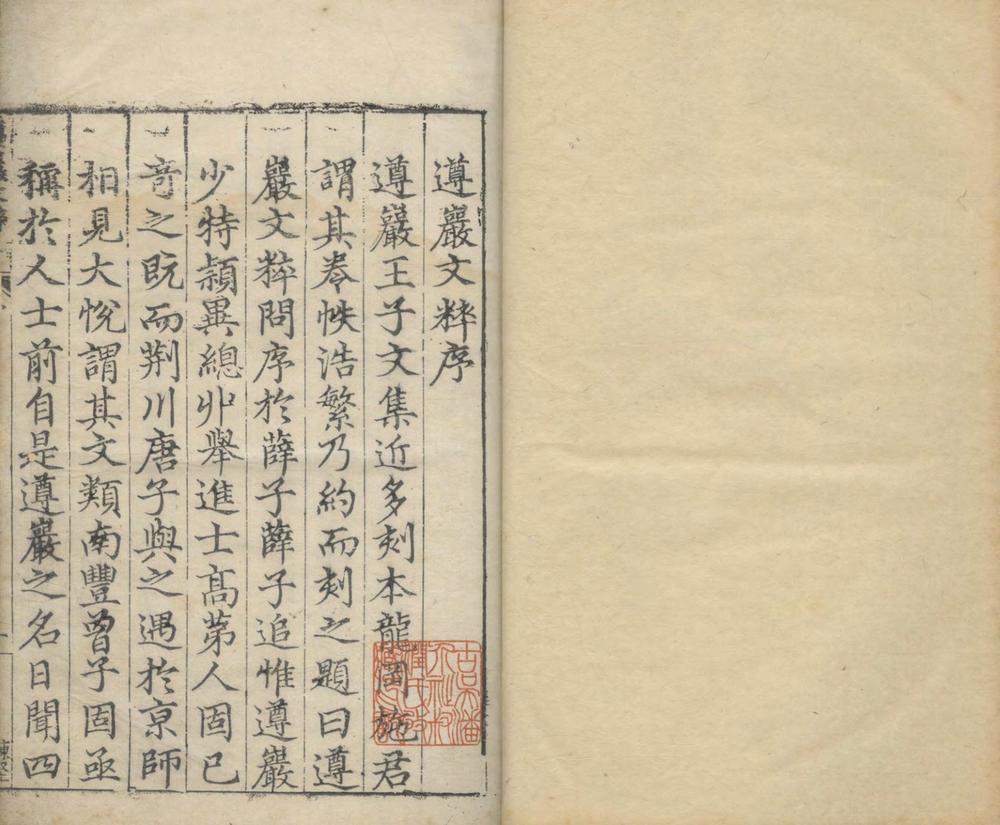 遵巖文粹序
遵巖王子文集近多刻本龍岡施君
謂其卷帙浩繁乃約而刻之題曰遵
巖文粹問序於薛子薛子追惟遵巖
少特穎異總丱舉進士高第人固已
奇之既而荆川唐子與之遇於京師
相見大悅謂其文類南豐曾子固亟
稱於人士前自是遵巖之名日聞四